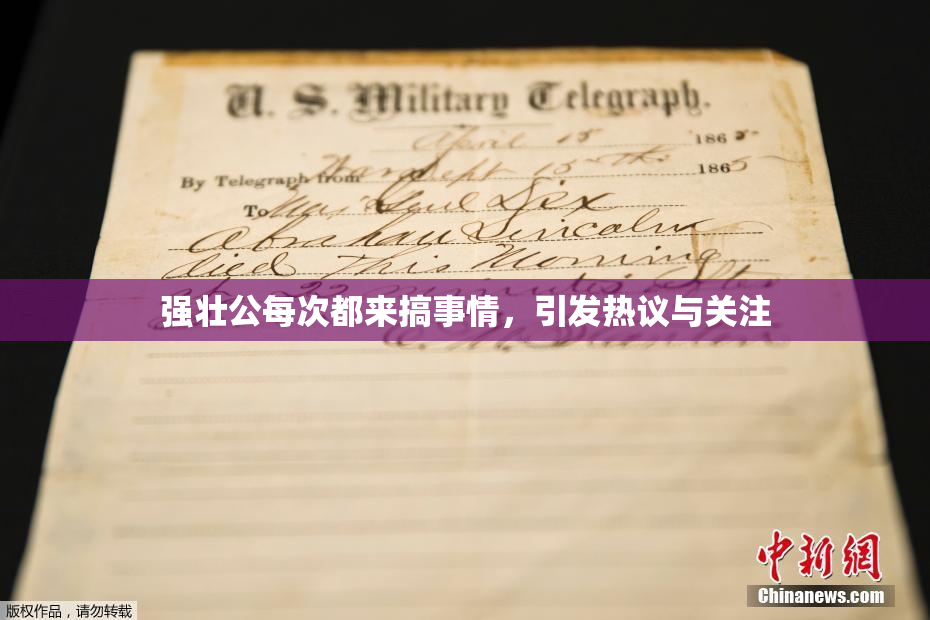 U. S. Military Telegraph.
April 15 1865
By Telegraph from War Dept 15th 1865
To Maj Genl Dix
Abraham Lincoln
died This Morning
22 minutes after
强壮公每次都来搞事情，引发热议与关注
中新网
Chinanews.com
版权作品，请勿转载